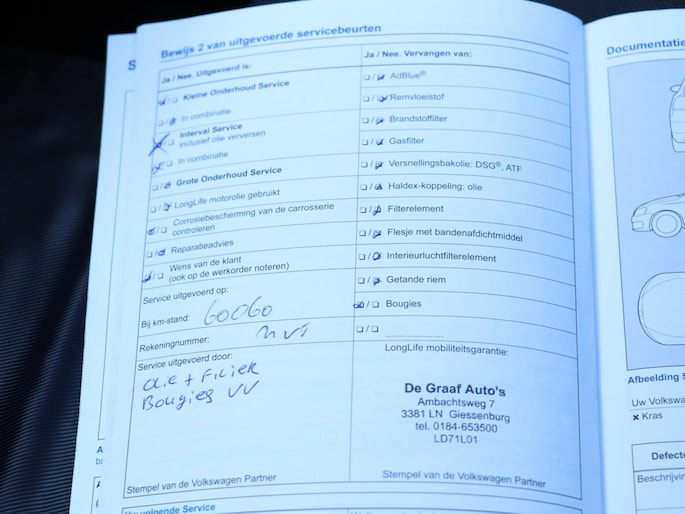 Bewijs 2 van uitgevoerde servicebeurten
Ja / Nee. Uitgevoerd is:
Kleine Onderhoud Service
In combinatie
Interval Service
inclusief olie verversen
In combinatie
Grote Onderhoud Service
LongLife motorolie gebruikt
Corrosiebescherming van de carrosserie
controleren
Reparatieadvies
Wens van de klant
(ook op de werkorder noteren)
Service uitgevoerd op:
Bij km-stand: 60060
Rekeningnummer: nvt
Service uitgevoerd door:
olie + Filter
Bougies VV
Stempel van de Volkswagen Partner
Uw volgende Service
Ja / Nee. Vervangen van:
AdBlue®
Remvloeistof
Brandstoffilter
Gasfilter
Versnellingsbakolie: DSG®, ATF
Haldex-koppeling: olie
Filterelement
Flesje met bandenafdichtmiddel
Interieurluchtfilterelement
Getande riem
Bougies
LongLife mobiliteitsgarantie:
De Graaf Auto's
Ambachtsweg 7
3381 LN Giessenburg
tel. 0184-653500
LD71L01
Stempel van de Volkswagen Partner
Documentatie
Afbeelding 5
Uw Volkswa
× Kras
Defecte
Beschrijvin